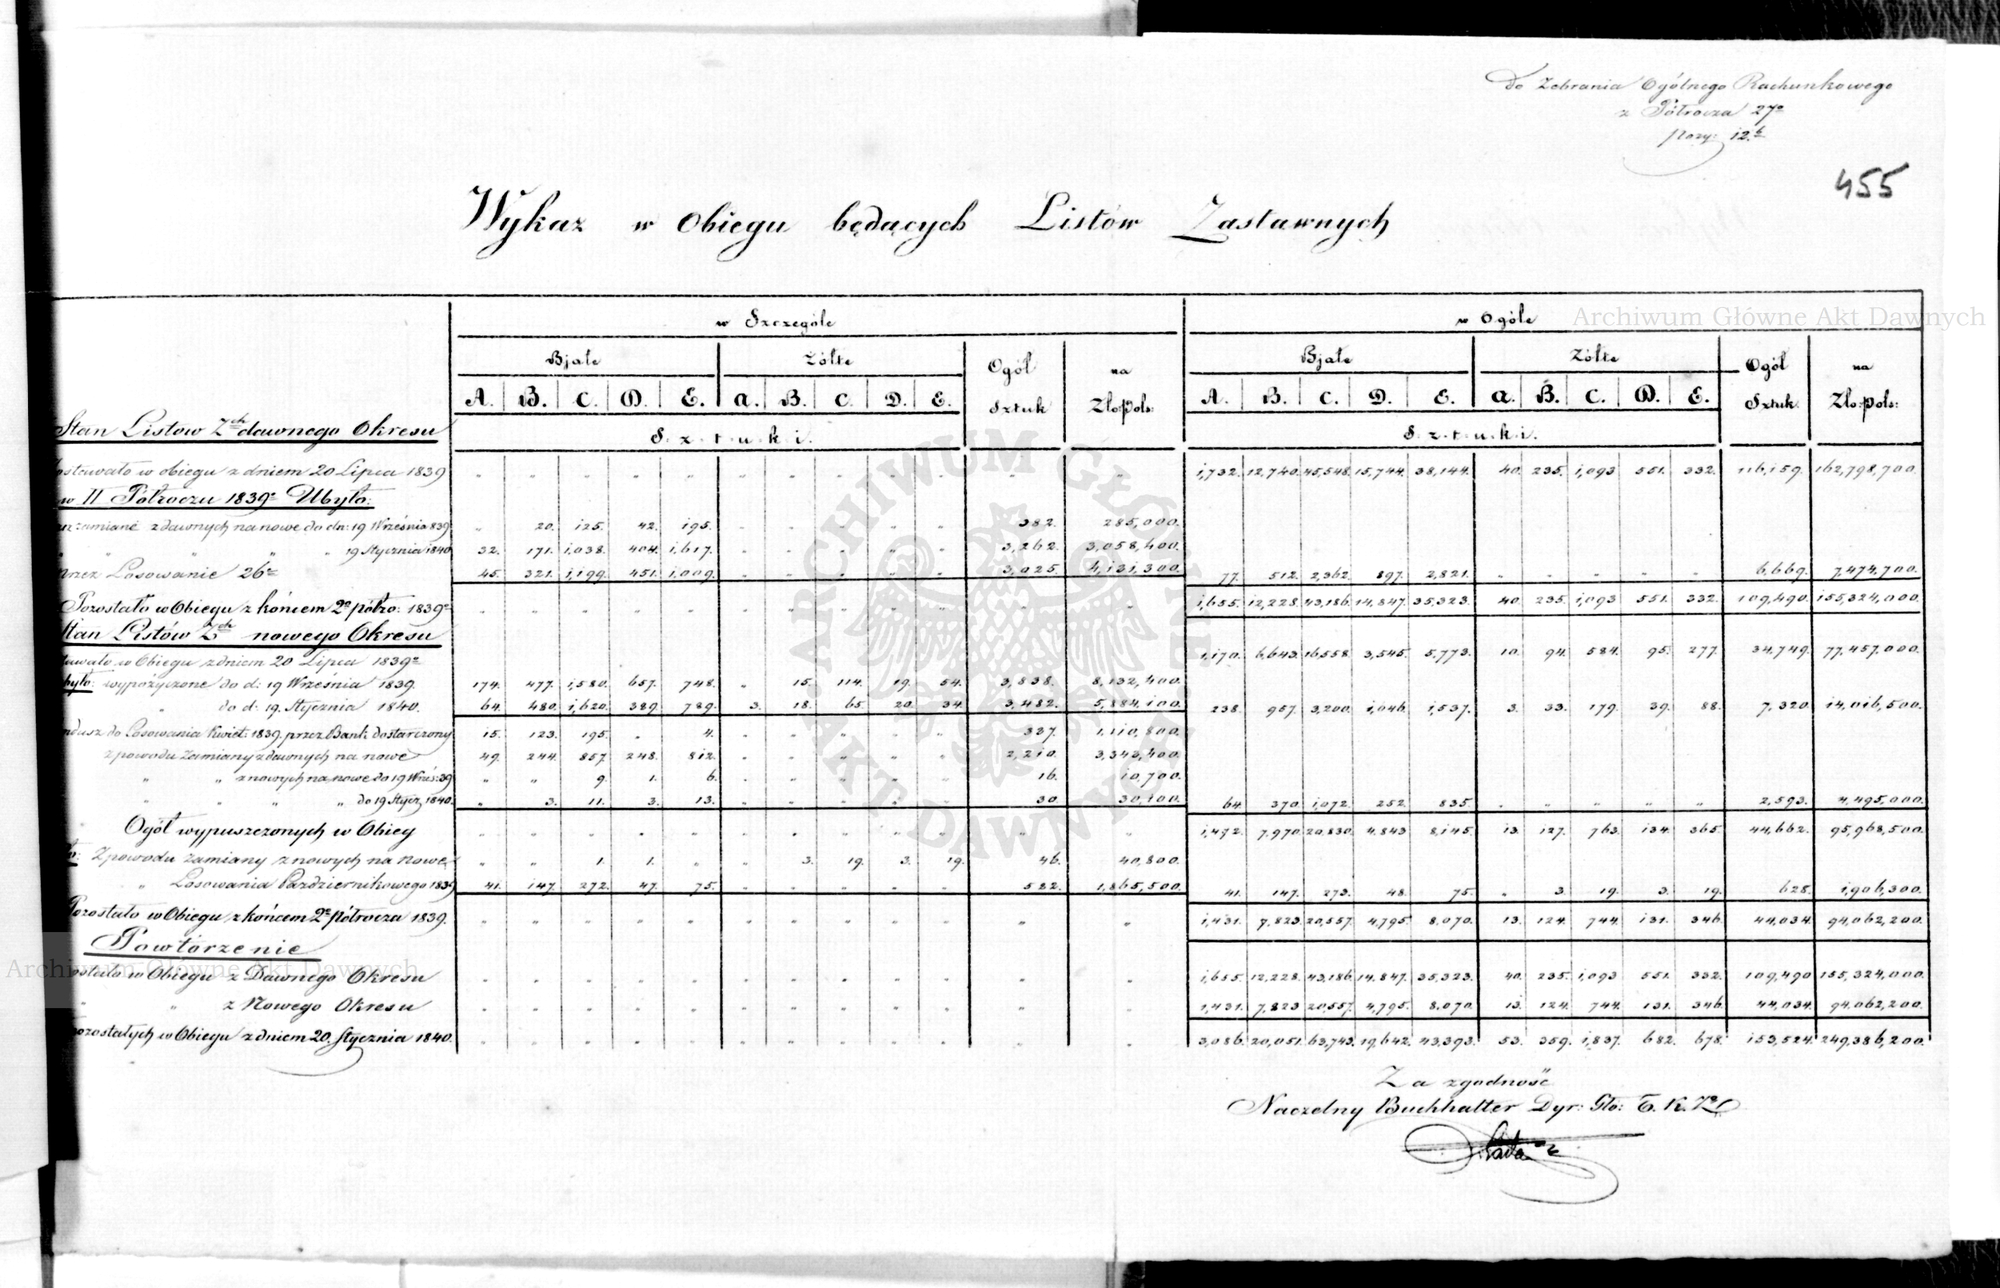 Do Zebrania Ogólnego Rachunkowego
z Półrocza 27º
pozy: 12.
455
Wykaz w Obiegu będących Listów Zastawnych
w Szczególe w Ogóle
Bjałe Żółte Ogół na Bjałe Żółte Ogół na
A. B. C. D. E. A. B. C. D. E. Sztuk Zło:Pols: A. B. C. D. E. A. B. C. D. E. Sztuk Zło:Pols:
Stan Listów Zch dawnego Okresu S.z.t.u.k.i. S.z.t.u.k.i.
ostawało w obiegu z dniem 20 Lipca 1839 " " " " " " " " " " " " 1,732. 12,740. 45,548. 15,744. 38,144. 40. 235. 1,093 551. 332. 116,159. 162,798,700.
w II Półroczu 1839º Ubyło:
zamianę z dawnych na nowe do dn: 19 Września 839 " 20. 125. 42. 195. " " " " " 382. 285,000.
" " " " 19 Stycznia 1840 32. 171. 1,038. 404. 1,617. " " " " " 3,262. 3,058,400.
przez Losowanie 26te 45. 321. 1,199. 451. 1,009. " " " " " 3,025. 4,131,300. 77. 512. 2,362. 897. 2,821. " " " " " 6,669. 7,474,700.
Pozostało w Obiegu z końcem 2º półro: 1839º " " " " " " " " " " " " 1,655. 12,228. 43,186. 14,847. 35,323. 40. 235. 1,093 551. 332. 109,490. 155,324,000.
Stan Listów Zch nowego Okresu
tawało w Obiegu z dniem 20 Lipca 1839º 1,170. 6,643. 16,558. 3,545. 5,773. 10. 94. 584. 95. 277. 34,749. 77,457,000.
było: wypożyczone do d: 19 Września 1839. 174. 477. 1,580. 657. 748. " 15. 114. 19. 54. 3,838. 8,132,400.
" do d: 19. Stycznia 1840. 64. 480. 1,620. 389. 789. 3. 18. 65. 20. 34. 3,482. 5,884,100. 238. 957. 3,200. 1,046. 1,537. 3. 33. 179. 39. 88. 7,320. 14,016,500.
ndusz do Losowania Kwiet: 1839. przez Bank dostarczony 15. 123. 195. " 4. " " " " " 337. 1,110,800.
z powodu Zamiany z dawnych na nowe 49. 244. 857. 248. 812. " " " " " 2,210. 3,343,400.
" " z nowych na nowe do 19 Wrześ: 39 " " 9. 1. 6. " " " " " 16. 10,700.
" " " " do 19 Stycz, 1840. " 3. 11. 3. 13. " " " " " 30. 30,100. 64. 370. 1,072. 252. 835. " " " " " 2,593. 4,495,000.
Ogół wypuszczonych w Obieg " " " " " " " " " " " " 1,472. 7,970. 20,830. 4,843 8,145. 13. 127. 763. 134. 365. 44,662. 95,968,500.
ło: Z powodu Zamiany z nowych na nowe " " 1. 1. " " 3. 19. 3. 19. 46. 40,800.
" Losowania Październikowego 1839 41. 147. 272. 47. 75. " " " " " 582. 1,865,500. 41. 147. 273. 48. 75. " 3. 19. 3. 19. 628. 1,906,300.
Pozostało w Obiegu z końcem 2º Półrocza 1839. " " " " " " " " " " " " 1,431. 7,823. 20,557. 4,795. 8,070. 13. 124. 744. 131. 346. 44,034. 94,062,200.
Powtórzenie
ostało w Obiegu z Dawnego Okresu " " " " " " " " " " " " 1,655. 12,228. 43,186. 14,847. 35,323. 40. 235. 1,093 551. 332. 109,490 155,324,000.
" " z Nowego Okresu " " " " " " " " " " " " 1,431. 7,823 20,557. 4,795. 8,070. 13. 124. 744. 131. 346. 44,034. 94,062,200.
pozostałych w Obiegu z dniem 20. Stycznia 1840. " " " " " " " " " " " " 3,086. 20,051. 63,743. 19,642. 43,393. 53. 359. 1,837. 682. 678. 153,524. 249,386,200.
Za zgodność
Naczelny Buchhalter Dyr: Głó: T. K. Zo
Archiwum Główne Akt Dawnych
Archiwum Główne Akt Dawnych
ARCHIWUM GŁÓWNE AKT DAWNYCH